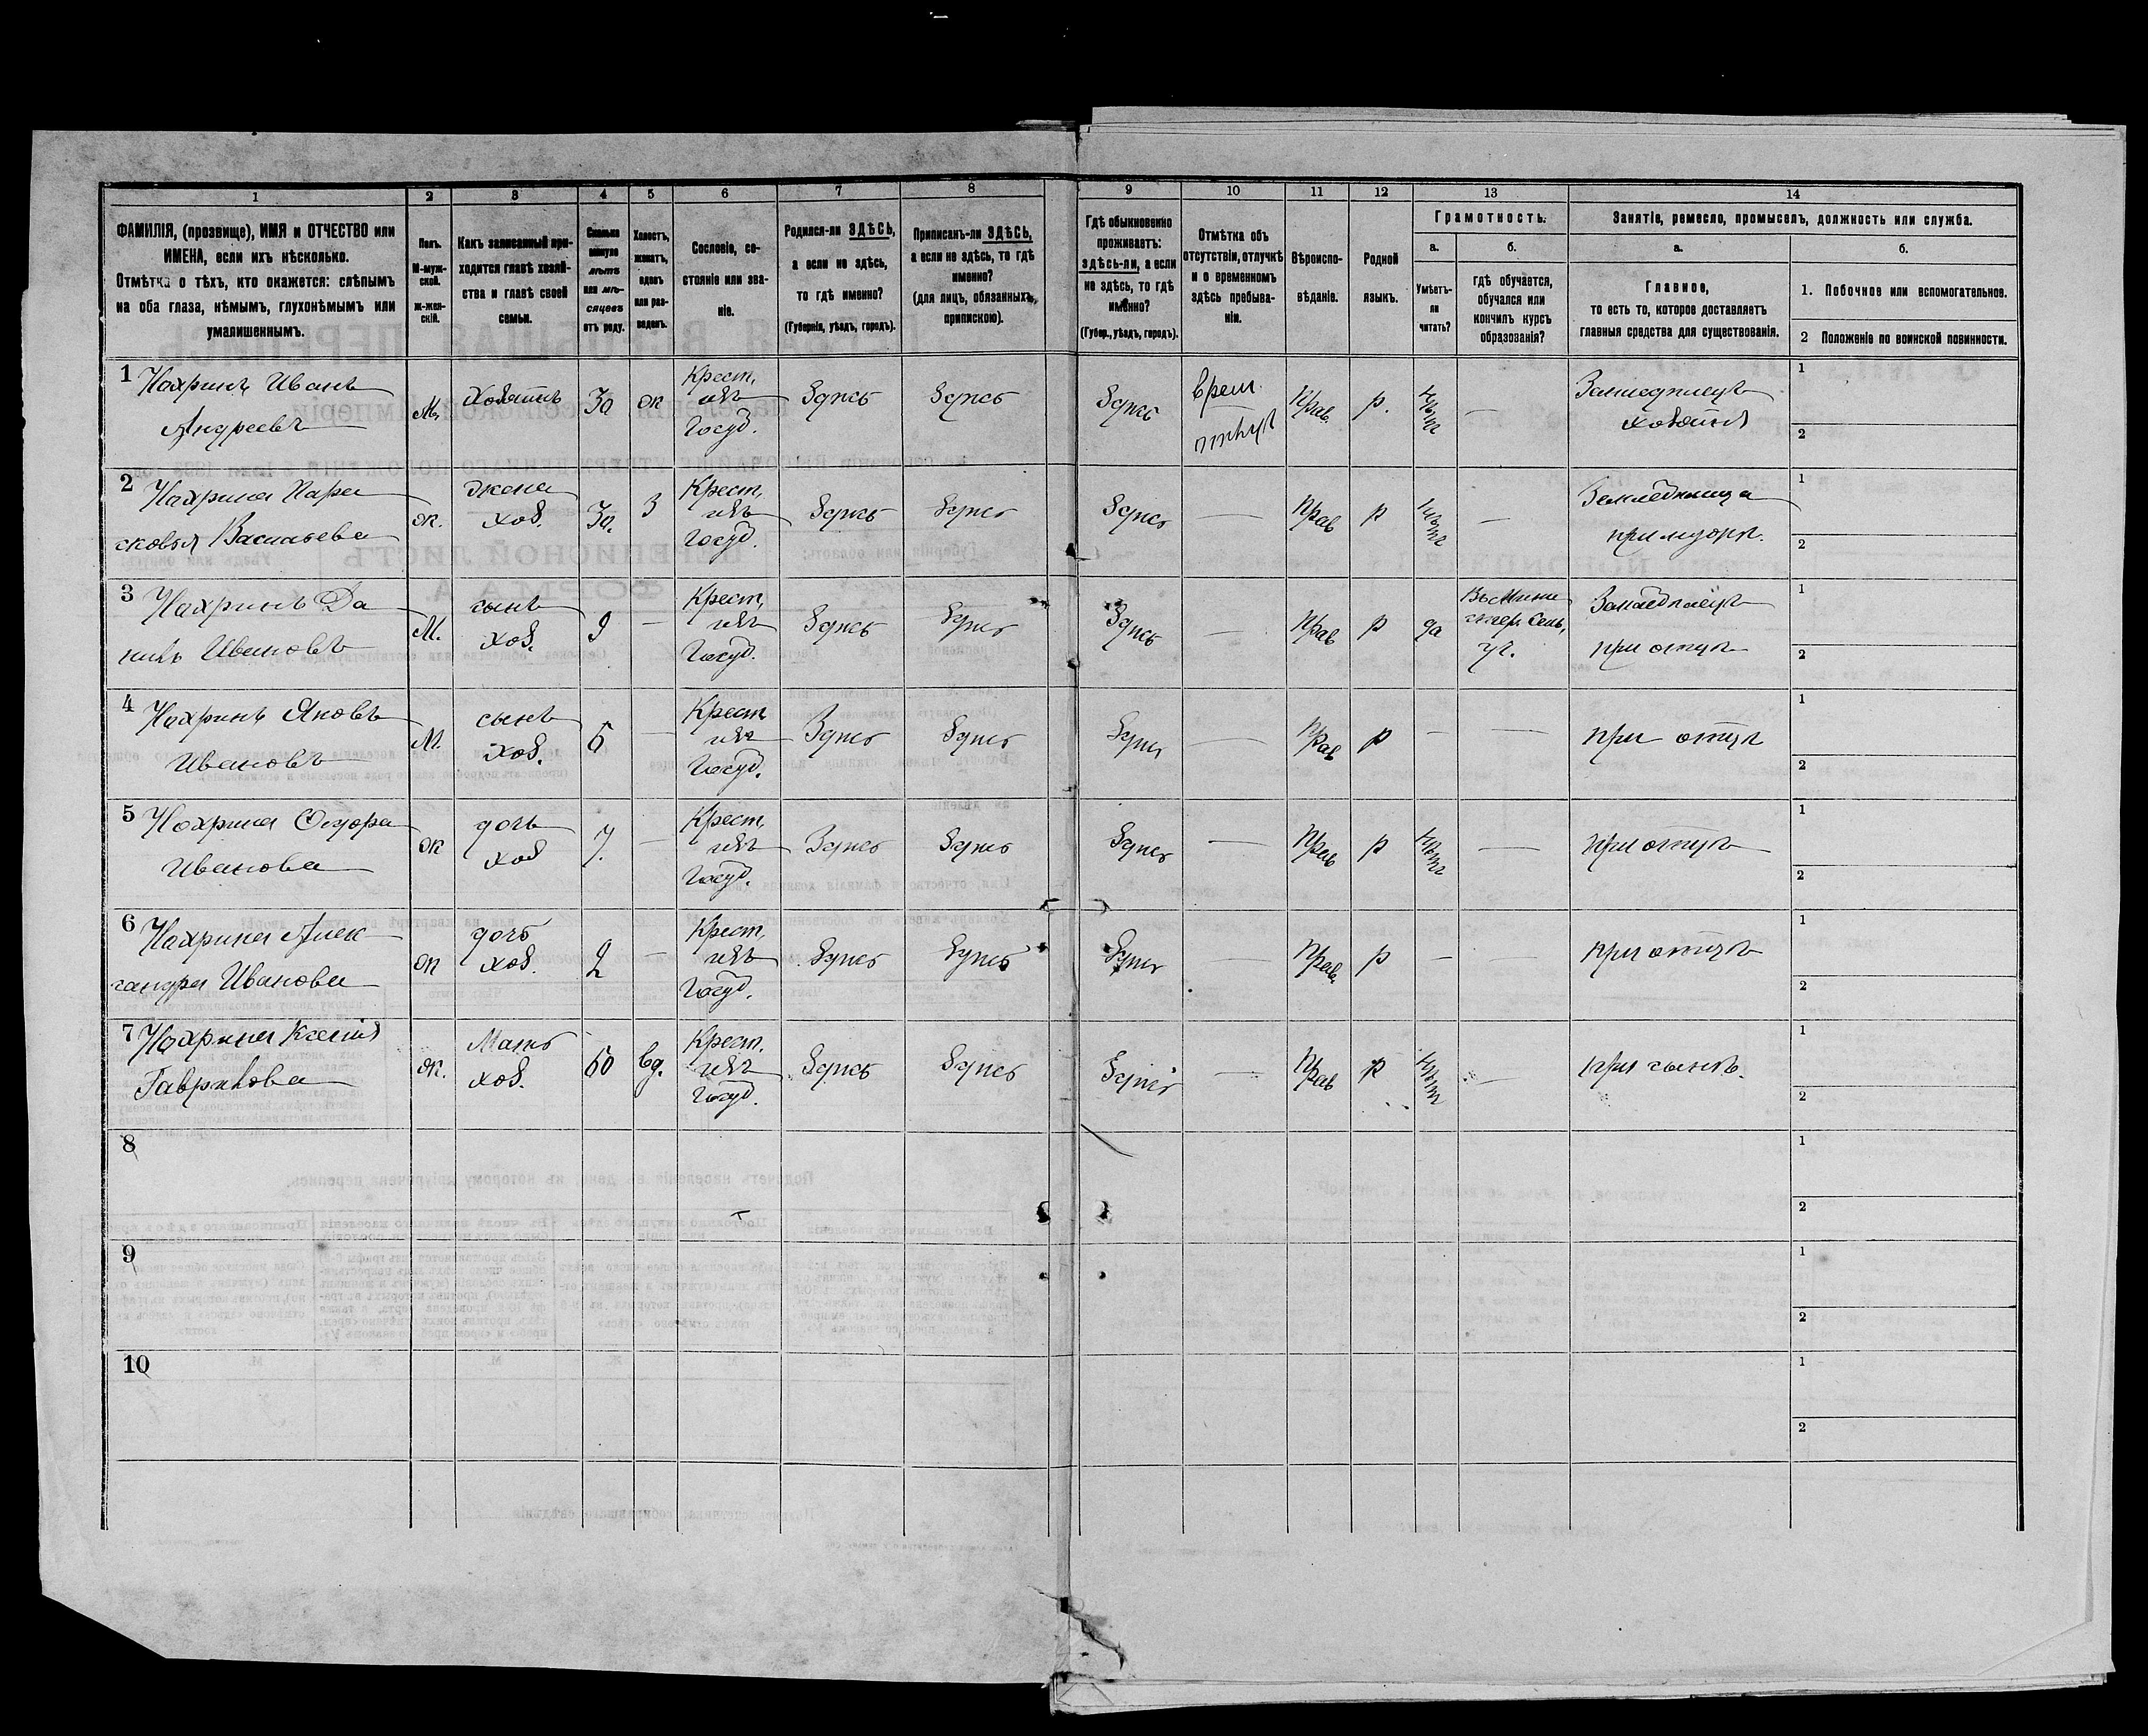 1 2 3 4 5 6 7 8 9 10 11 12 13 14
ФАМИЛІЯ, (прозвище), ИМЯ и ОТЧЕСТВО или
ИМЕНА, если ихъ нѣсколько.
Отмѣтка о тѣхъ, кто окажется: слѣпымъ
на оба глаза, нѣмымъ, глухонѣмымъ или
умалишеннымъ.
Полъ.
М-муж-
ской.
Ж-жен-
скій.
Какъ записанный при-
ходится главѣ хозяй-
ства и главѣ своей
семьи.
Сколько
минуло
лѣтъ
или мѣ-
сяцевъ
отъ роду.
Холостъ,
женатъ,
вдовъ
или раз-
веденъ.
Сословіе, со-
стояніе или зва-
ніе.
Родился-ли ЗДѢСЬ,
а если не здѣсь,
то гдѣ именно?
(Губернія, уѣздъ, городъ).
Приписанъ-ли ЗДѢСЬ,
а если не здѣсь, то гдѣ
именно?
(для лицъ, обязанныхъ
припискою).
Гдѣ обыкновенно
проживаетъ:
здѣсь-ли, а если
не здѣсь, то гдѣ
именно?
(Губер., уѣздъ, городъ).
Отмѣтка объ
отсутствіи, отлучкѣ
и о временномъ
здѣсь пребыва-
ніи.
Вѣроиспо-
вѣданіе.
Родной
языкъ.
Грамотность.
а.
Умѣетъ-
ли
читать?
б.
гдѣ обучается,
обучался или
кончилъ курсъ
образованія?
Занятіе, ремесло, промыселъ, должность или служба.
а.
Главное,
то есть то, которое доставляетъ
главныя средства для существованія.
б.
1. Побочное или вспомогательное.
2 Положеніе по воинской повинности.
1 Нахринъ Иванъ
Андреевъ
М.
Хозяинъ
30
ж
Крест.
изъ
Госуд.
Здѣсь
Здѣсь
Здѣсь
врем.
Прав.
р.
нѣтъ
—
1
2
2 Нахрина Пара
сковья Васильева
ж.
жена
хоз.
30.
З
Крест.
изъ
Госуд.
Здѣсь
Здѣсь
Здѣсь
—
Прав
р
нѣтъ
—
1
2
3 Нахринъ Да
нилъ Ивановъ
М.
сынъ
хоз.
9
—
Крест.
изъ
Госуд.
Здѣсь
Здѣсь
Здѣсь
—
Прав
р
да
уч.
при отцѣ
1
2
4 Нахринъ Яковъ
Ивановъ
М.
сынъ
хоз.
5
—
Крест
изъ
Госуд.
Здѣсь
Здѣсь
Здѣсь
—
Прав
р
—
—
при отцѣ
1
2
5 Нахрина
Иванова
ж
дочь
хоз
7.
—
Крест.
изъ
Госуд.
Здѣсь
Здѣсь
Здѣсь
—
Прав
р
нѣтъ
—
при отцѣ
1
2
6 Нахрина Алек
сандра Иванова
ж
дочь
хоз.
2
—
Крест.
изъ
Госуд.
Здѣсь
Здѣсь
Здѣсь
—
Прав.
р
—
—
при отцѣ
1
2
7 Нахрина Ксенія
Гаврилова
ж.
Мать
хоз.
60
вд.
Крест.
изъ
Госуд.
Здѣсь
Здѣсь
Здѣсь
—
Прав
р
нѣтъ
—
при сынѣ.
1
2
8
1
2
9
1
2
10
1
2